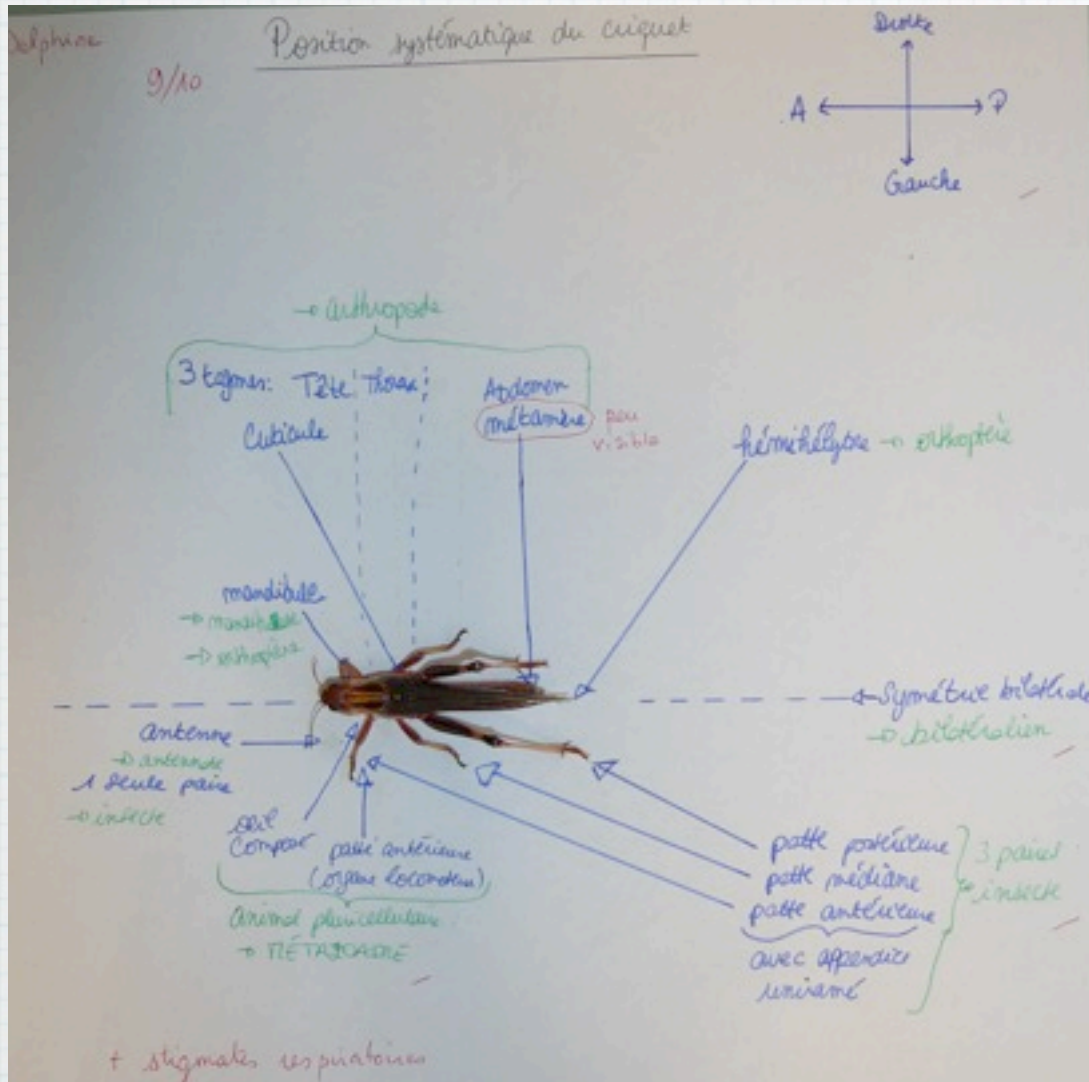 Delphine
Position systématique du criquet
9/10
Droite
A
P
Gauche
→ arthropode
3 tagmes: Tête Thorax
Abdomen
métamère
peu
visible
Cuticule
hémihélytre → orthoptère
mandibule
→ orthoptère
Symétrie bilatérale
→ bilatéralien
antenne
→ antennate
1 seule paire
→ insecte
œil
composé
patte antérieure
(organe locomoteur)
animal pluricellulaire
→ MÉTAZOAIRE
patte postérieure
patte médiane
patte antérieure
3 paires
→ insecte
avec appendice
uniramé
+ stigmates respiratoires